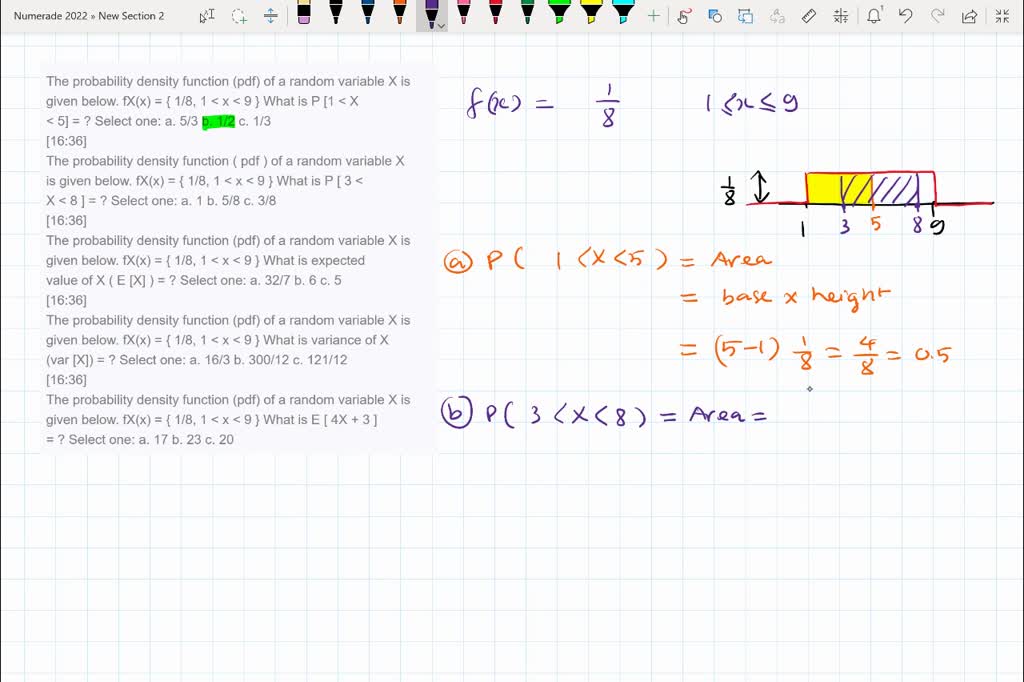 Numerade 2022 » New Section 2
The probability density function (pdf) of a random variable X is
given below. fX(x) = { 1/8, 1 < x < 9 } What is P [1 < X
< 5] = ? Select one: a. 5/3 b. 1/2 c. 1/3
[16:36]
The probability density function ( pdf ) of a random variable X
is given below. fX(x) = { 1/8, 1 < x < 9 } What is P [ 3 <
X < 8 ] = ? Select one: a. 1 b. 5/8 c. 3/8
[16:36]
The probability density function (pdf) of a random variable X is
given below. fX(x) = { 1/8, 1 < x < 9 } What is expected
value of X ( E [X] ) = ? Select one: a. 32/7 b. 6 c. 5
[16:36]
The probability density function (pdf) of a random variable X is
given below. fX(x) = { 1/8, 1 < x < 9 } What is variance of X
(var [X]) = ? Select one: a. 16/3 b. 300/12 c. 121/12
[16:36]
The probability density function (pdf) of a random variable X is
given below. fX(x) = {1/8, 1 < x < 9 } What is E [ 4X + 3 ]
= ? Select one: a. 17 b. 23 c. 20
f(x) = 1/8 1 ≤ x ≤ 9
1/8
1 3 5 8 9
(a) P( 1 < X < 5 ) = Area
= base x height
= (5-1) 1/8 = 4/8 = 0.5
(b) P( 3 < X < 8 ) = Area =